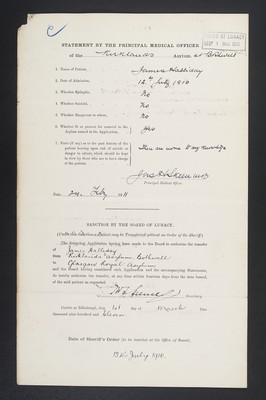 C
STATEMENT BY THE PRINCIPAL MEDICAL OFFICER
of the Kirklands Asylum, at Bothwell
1. Name of Patient, James Halliday
2. Date of Admission, 12th July 1910
3. Whether Epileptic, No
4. Whether Suicidal, No
5. Whether Dangerous to others, No
6. Whether fit at present for removal to the Asylum named in the Application, Yes
7. Facts (if any) as to the past history of the patient bearing upon risk of suicide or danger to others, which should be kept in view by those who are to have charge of the patient, There are none to my knowledge
Principal Medical Officer.
Date, Feby 1911
SANCTION BY THE BOARD OF LUNACY.
The foregoing Application having been made to the Board to authorise the transfer
of James Halliday
from Kirklands Asylum Bothwell
to Glasgow Royal Asylum
and the Board having considered such Application and the accompanying Statements,
do hereby authorise the transfer, at any time within fourteen days from the date hereof,
of the said patient as requested.
Secretary.
Edinburgh, this 1st day of March One
thousand nine hundred and eleven
Date of Sheriff's Order (to be inserted at the Office of Board),
July 1910.